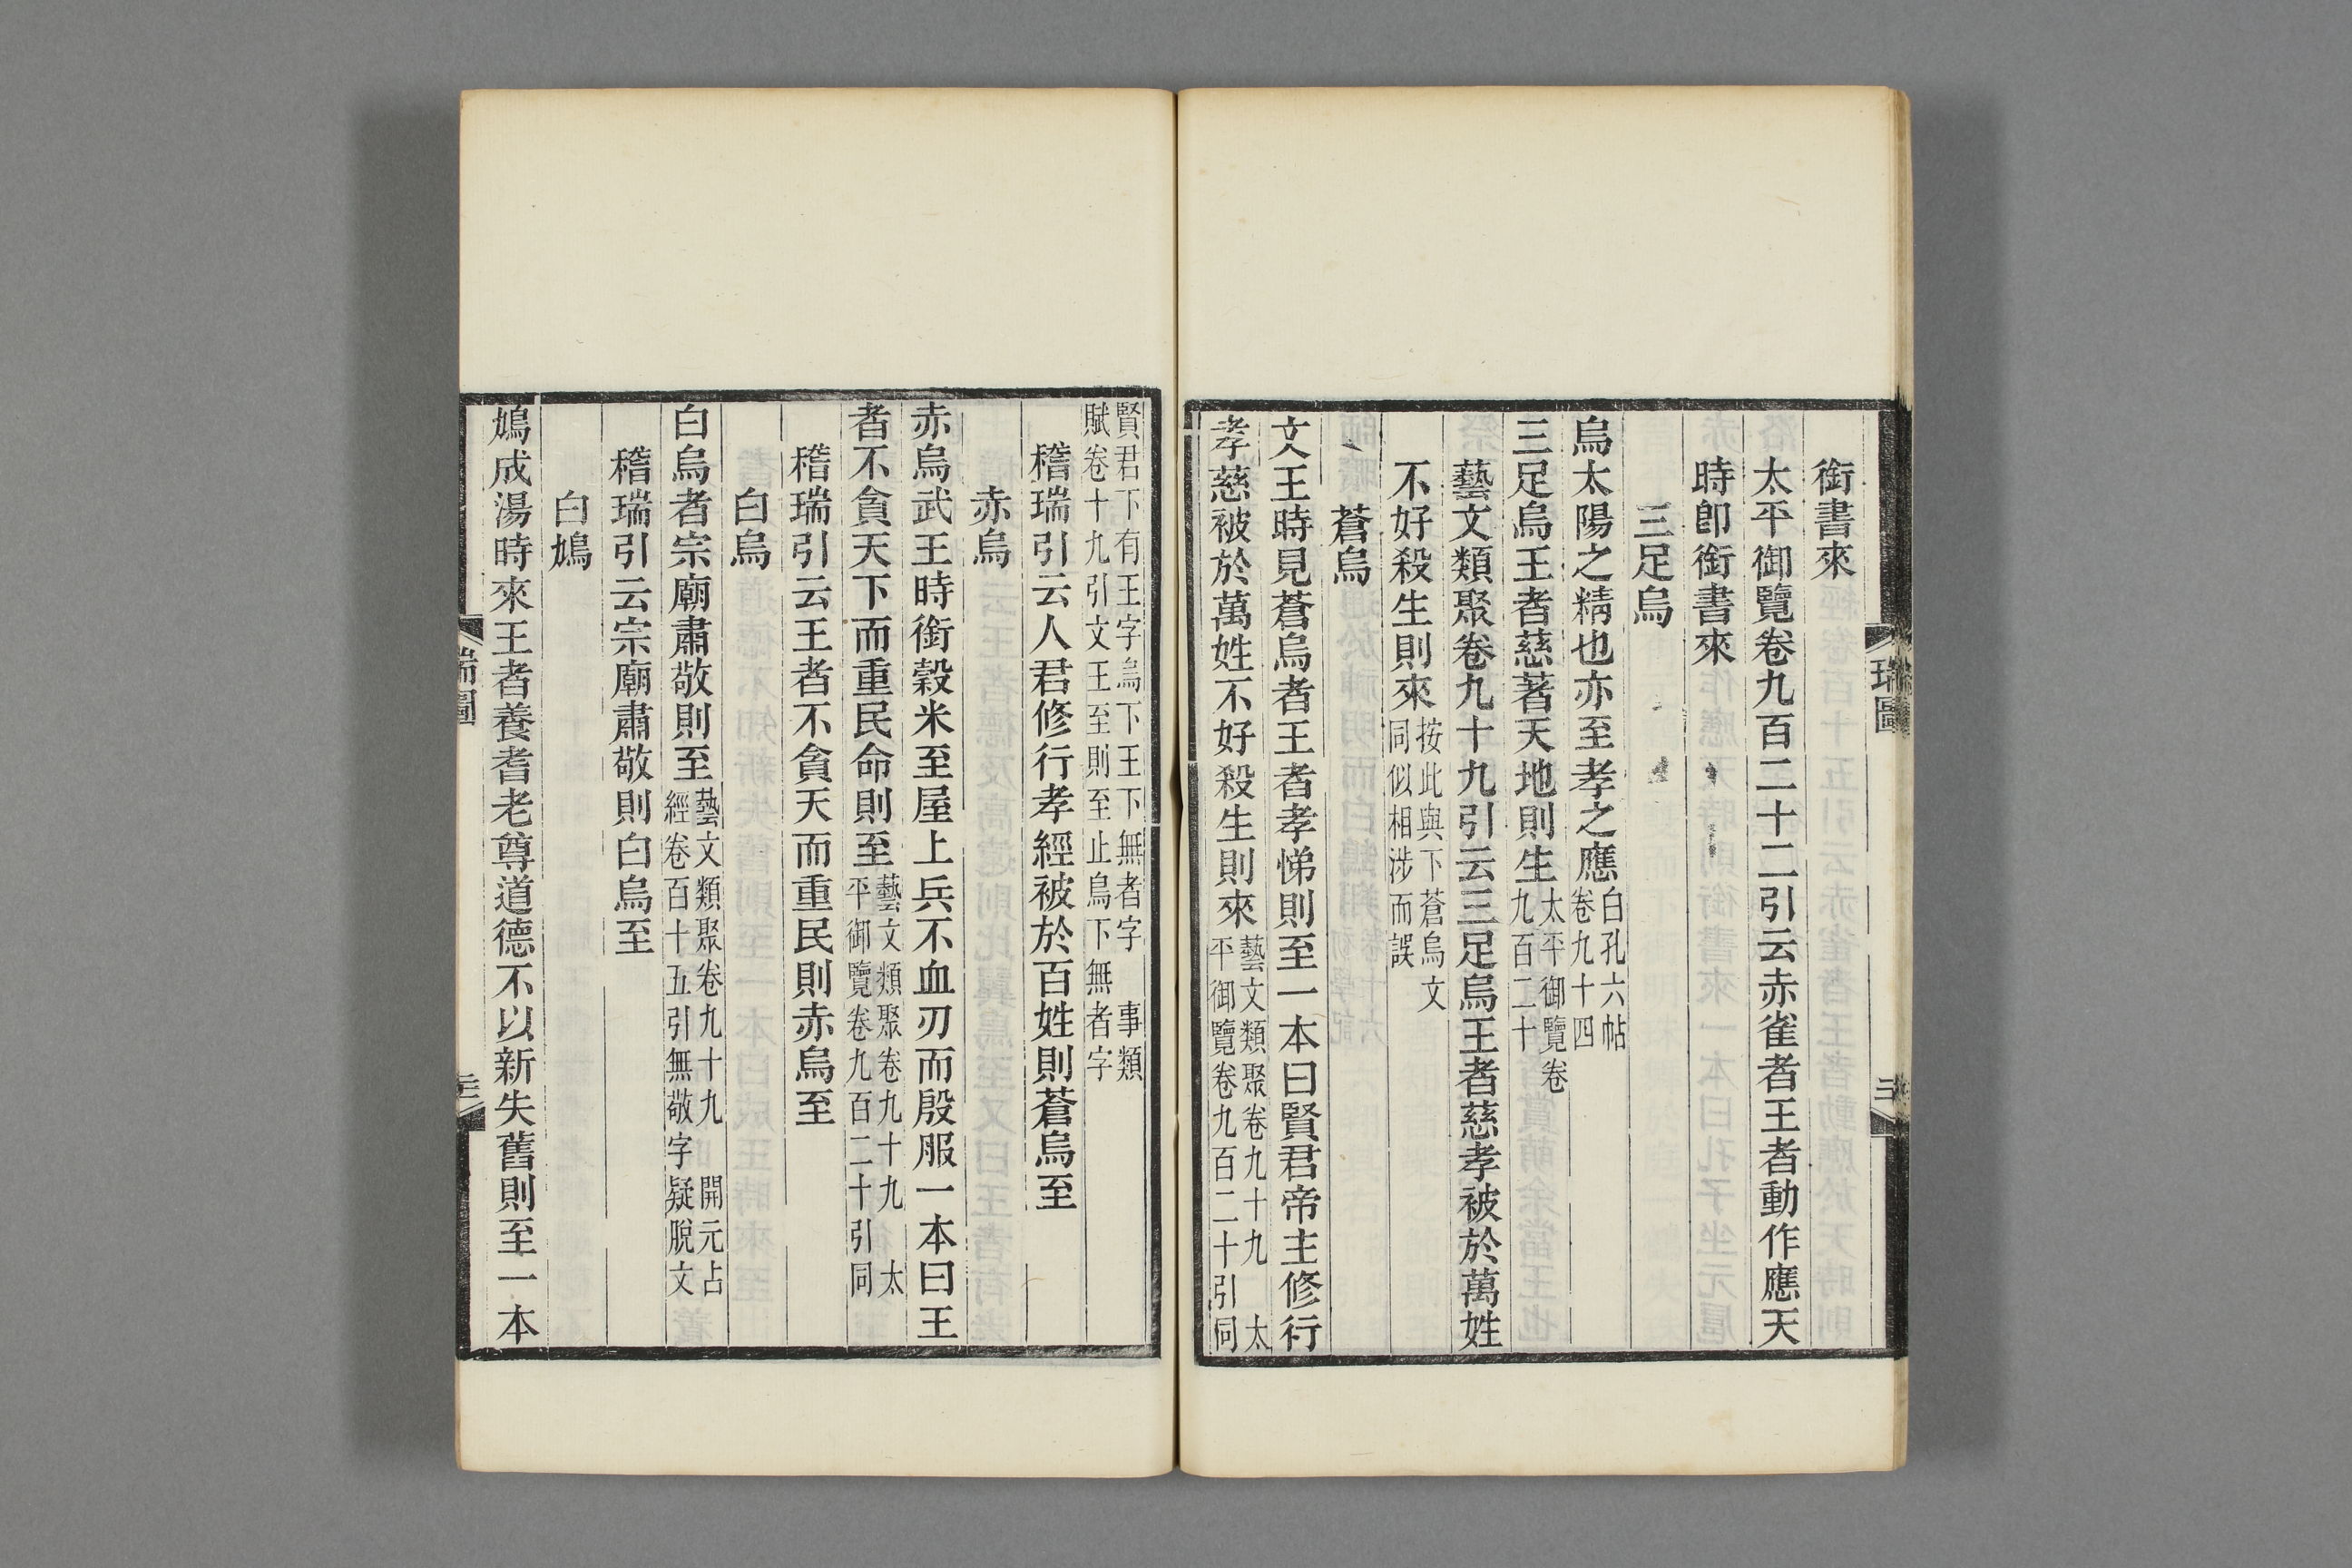 銜書來
太平御覽卷九百二十二引云赤雀者王者動作應天
時卽銜書來
三足烏
烏太陽之精也亦至孝之應白孔六帖卷九十四
三足烏王者慈著天地則生太平御覽卷九百二十
藝文類聚卷九十九引云三足烏王者慈孝被於萬姓
不好殺生則來按此與下蒼烏文同似相涉而誤
蒼烏
文王時見蒼烏者王者孝悌則至一本曰賢君帝主修行
孝慈被於萬姓不好殺生則來藝文類聚卷九十九 太平御覽卷九百二十引同
賢君下有王字烏下王下無者字 事類賦卷十九引文王至則至止烏下無者字
稽瑞引云人君修行孝經被於百姓則蒼烏至
赤烏
赤烏武王時銜穀米至屋上兵不血刃而殷服一本曰王
者不貪天下而重民命則至藝文類聚卷九十九 太平御覽卷九百二十引同
稽瑞引云王者不貪天而重民則赤烏至
白烏
白烏者宗廟肅敬則至藝文類聚卷九十九 開元占經卷百十五引無敬字疑脫文
稽瑞引云宗廟肅敬則白烏至
白鳩
鳩成湯時來王者養耆老尊道德不以新失舊則至一本
瑞圖